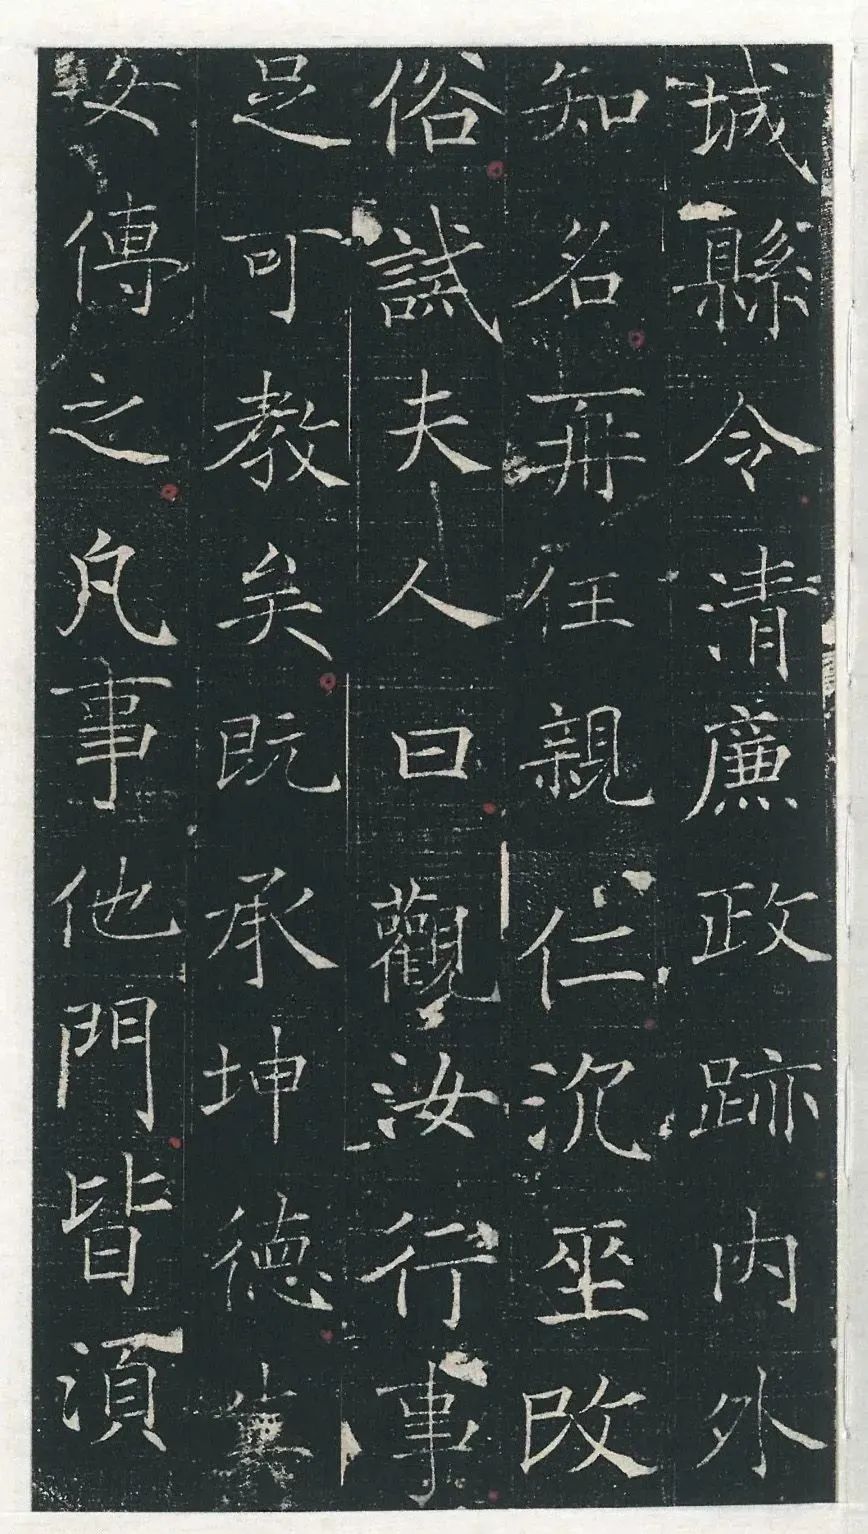 城縣令清廉政跡内外
知名再任親仁沉坐改
俗試夫人曰觀汝行事
足可教矣既承坤德冀
傳之凡事他門皆須